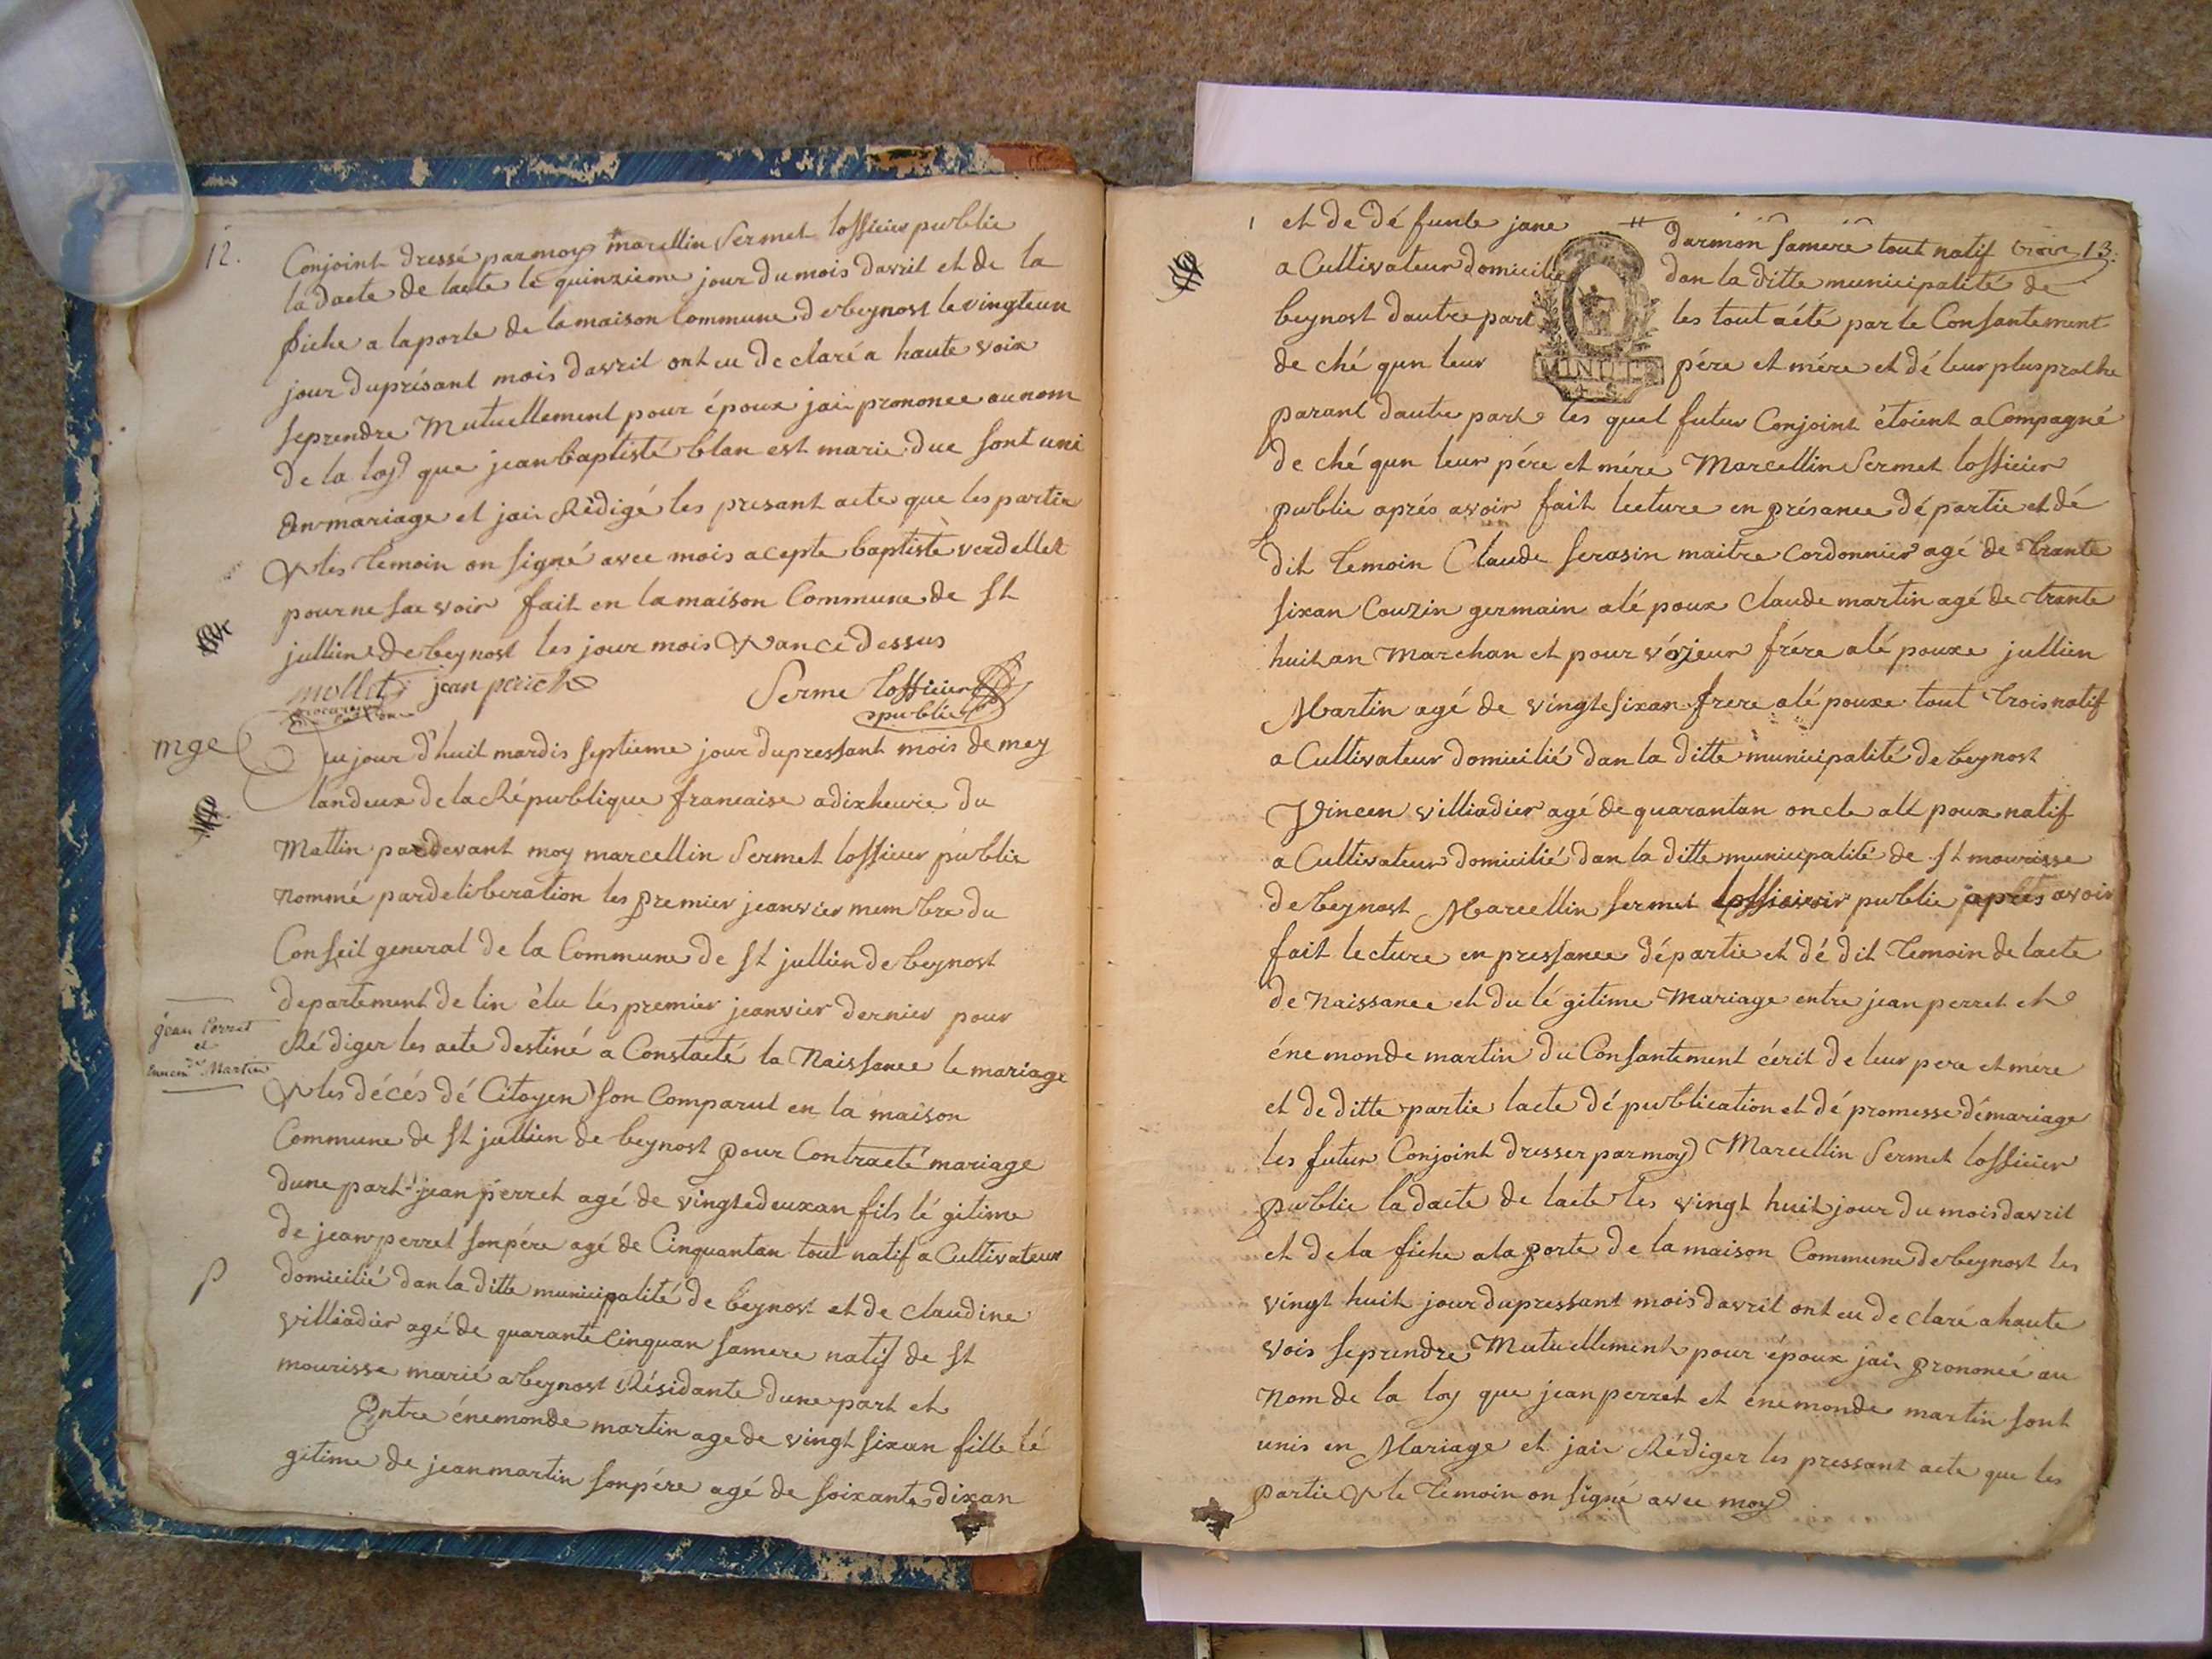 12.
Conjoint dressé par moy marcellin Sermet lofficier publie
la dacte de lacte le quinzieme jour du mois davril et de la
fiche a la porte de la maison Commune de beynost le vingteun
jour du présant mois davril ont eu declaré a haute voix
seprendre Mutuellement pour époux jai prononce au nom
de la loy que jean baptisté blan est marie duc sont uni
en mariage et jai Rédigé les presant acte que les partie
& les temoin on signé avec mois acepte baptiste verdellet
pour ne sae voir fait en la maison Commune de St
jullien de beynost les jour mois & an ci dessus
mollet jean perich Serme lofficier
publie
mge
Aujour d'huit mardis septieme jour du pressant mois de mey
landeux de la République francaise a dix heure du
Mattin par devant moy marcellin Sermet lofficier publie
nommé par deliberation les premier jeanvier membre du
Conseil general de la Commune de St jullien de beynost
departement de lin èlu lés premier jeanvier dernier pour
Rédiger les acte destiné a Constacté la Naissance le mariage
jean Perret
et
Ennemde Martin
& les décés dé Citoyen son Comparut en la maison
Commune de St jullien de beynost pour Contracté mariage
dune part jean perret agé de vingtedeuxan fils lé gitime
de jean perret son pére agé de Cinquantan tout natif a Cultivateur
domicilié dan la ditte municipalité de beynost et de claudine
villiadier agé de quarante Cinquan samere natif de St
mourisse marié a beynost Résidante dune part et
Entre énemonde martin age de vingt sixan fille lé
gitime de jean martin son pére agé de soixante dixan
et de dé funte jane darmon samere tout natif 13.
a Cultivateur domicilie dan la ditte municipalité de
beynost dautre part les tout a été par le Consantement
de ché qun leur pére et mére et dé leur plus proche
MINUTE
parant dautre part les quel futur Conjoint étoient a Compagné
de ché qun leur pére et méré Marcellin Sermet lofficier
publie aprés avoir fait lecture en présance dé partie et dé
dit temoin Claude serasin maitre Cordonnier agé de trante
sixan Couzin germain alé poux Claude martin agé de trante
huit an Marchan et pour vójeur frére alé pouxe jullien
Martin agé de vingte sixan frere alé pouxe tout trois natif
a Cultivateur domicilié dan la ditte municipalité de beynost
Vincen villiadier agé de quarantan oncle alé poux natif
a Cultivateur domicilié dan la ditte municipalité de St mourisse
de beynost Marcellin Sermet lofficier publie aprés avoir
fait lecture en pressance dé partie et dé dit temoin de lacte
de Naissance et du lé gitime Mariage entre jean perret et
éne monde martin du Consantement écrit de leur pere et mére
et de ditte partie lacte dé publication et dé promesse démariage
les futur Conjoint dresser par moy Marcellin Sermet lofficier
publie la dacte de lacte les vingt huit jour du mois davril
et de la fiche a la porte de la maison Commune de beynost les
vingt huit jour du pressant mois davril ont eu declaré a haute
vois seprendre Mutuellement pour époux jai prononcé au
Nom de la loy que jean perret et éne monde martin sont
unis en Mariage et jai Rédiger les pressant acte que les
partie & le temoin on signé avec moy